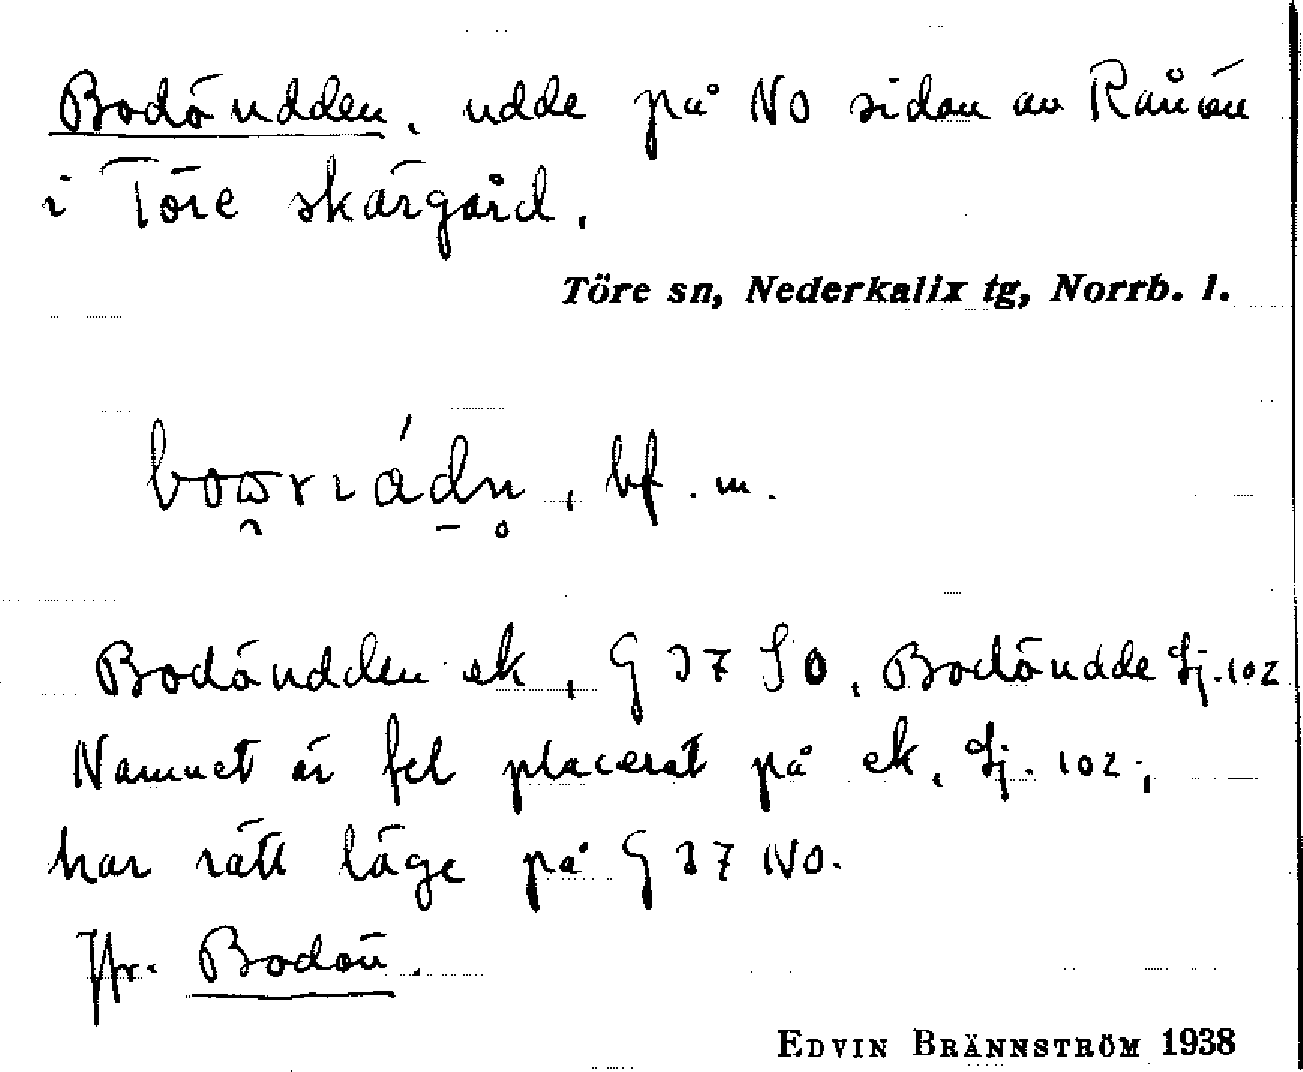 Bodöudden, udde på NO sidan av Rånön
i Töre skärgård.
Töre sn, Nederkalix tg, Norrb. l.
bf. m.
Bodöudden ek, G 37 SO, Bodöudde Sj. 102
Namnet är fel placerat på ek, Sj. 102;
har rätt läge på G 37 NO.
Jfr. Bodön.
EDVIN BRÄNNSTRÖM 1938